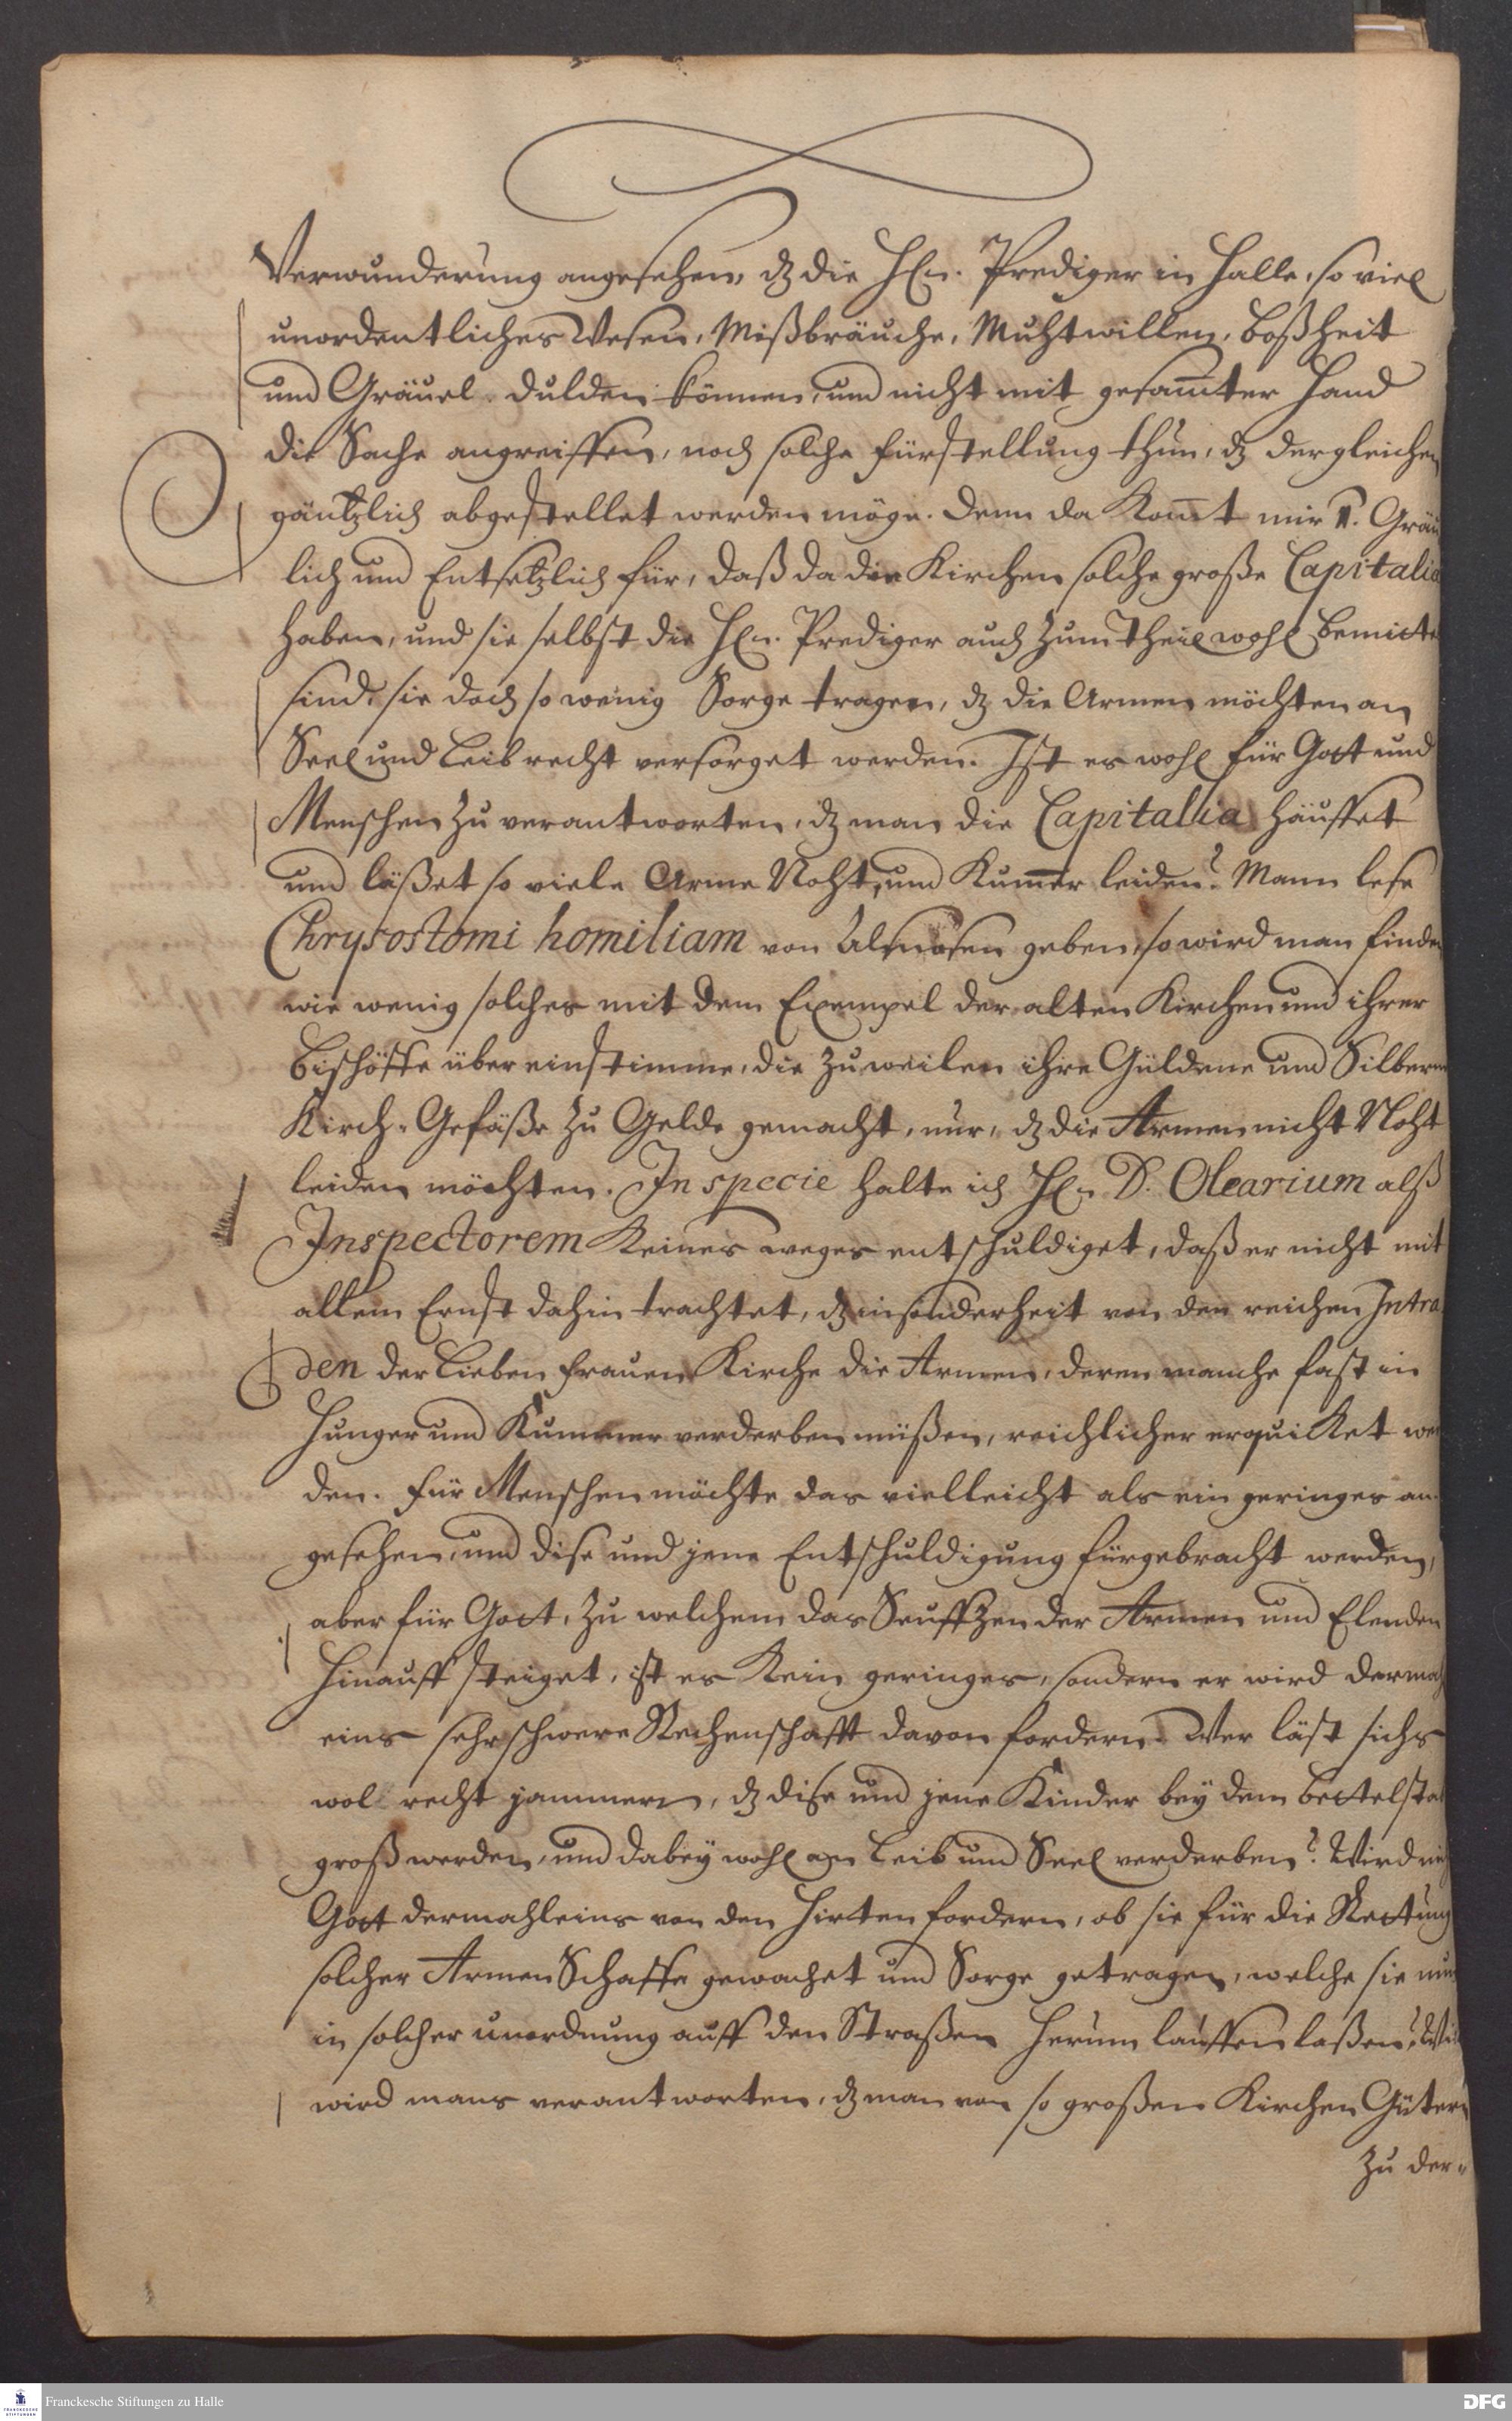 Verwunderung angesehen, dz die HEn. Prediger in Halle, so viel
unordentliches Wesen, Mißbräuche, Muhtwillen, Boßheit
und Gräuel dulden können, und nicht mit gesam̅ter Hand
die Sache angreiffen, noch solche fürstellung thun, dz dergleichen
gäntzlich abgestellet werden möge. Denn da Kom̅t mir II. Gräu
lich und Entsetzlich für, daß da die Kirchen solche große Capitalia
haben, und sie selbst die HEn. Prediger auch zum Theil wohl bemitte
sind, sie doch so wenig Sorge tragen, dz die Armen möchten an
Seel und Leib recht versorget werden. Ist es wohl für Gott und
Menschen zu verantworten, dz man die Capitallia häuffet
und läßet so viele Arme Noht, und Kum̅er leiden? Mann lese
Chrysostomi homiliam von Almosen geben, so wird man finden
wie wenig solches mit dem Exempel der alten Kirchen und ihrer
Bischöffe übereinstimme, die zuweilen ihre Güldene und Silberne
Kirch-Gefäße zu Gelde gemacht, nur, dz die Armen nicht Noht
leiden möchten. In specie halte ich HEn D. Olearium alß
Inspectorem Keines weges entschuldiget, daß er nicht mit
allem Ernst dahin trachtet, dz insonderheit von den reichen Intra
den der Lieben Frauen Kirche die Armen, deren manche fast in
Hunger und Kummer verderben müßen, reichlicher erquiKet wer
den. Für Menschen möchte das vielleicht als ein geringes an-
gesehen, und dise und jene Entschuldigung fürgebracht werden,
aber für Gott, zu welchem das Seuffzen der Armen und Elenden
hinauff steiget, ist es Kein geringes, sondern er wird dermahl
eins sehr schwere Rechenschafft davon fordern. Wer läst sichs
wol recht jammern, dz dise und jene Kinder bey dem Bettelstab
groß werden, und dabey wohl an Leib und Seel verderben? Wird nicht
Gott dermahleins von den Hirten fordern, ob sie für die Rettung
solcher Armen Schaffe gewachet und Sorge getragen, welche sie nun
in solcher unordnung auff den Straßen herum lauffen laßen? Wie
wird mans verantworten, dz man von so großen Kirchen Gütern
zu der-
Franckesche Stiftungen zu Halle
DFG